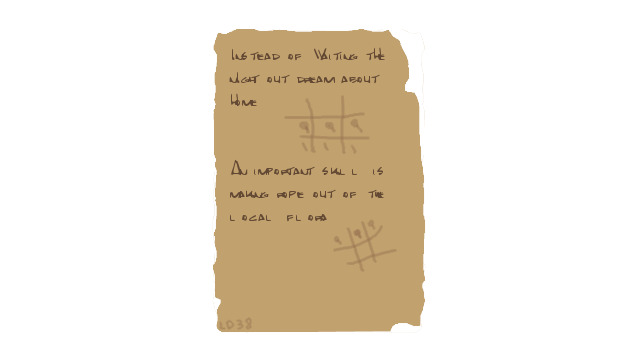 Instead of Waiting the
night out dream about
Home
An important skill is
making rope out of the
local flora
LD38